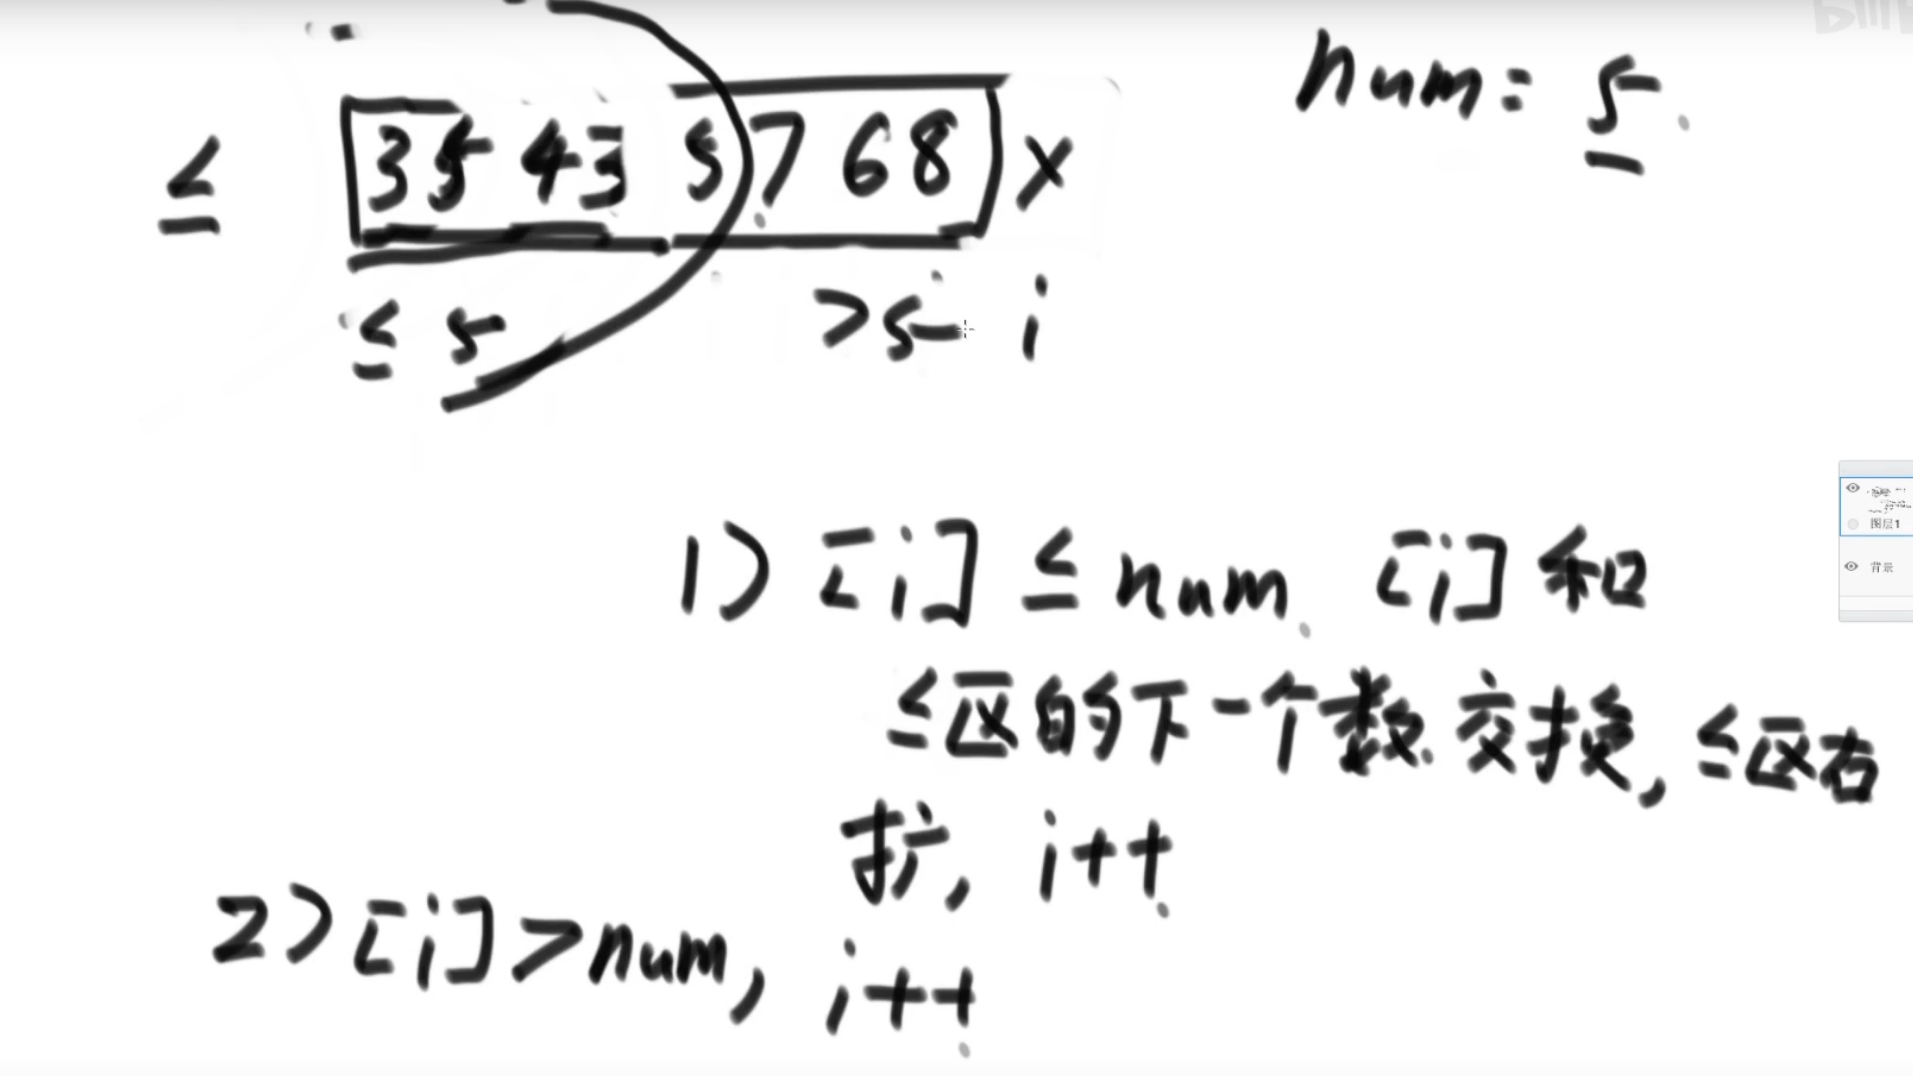 num = 5
≤ 3 5 4 3 5 7 6 8 x
≤ 5 >5 i
1) [i] ≤ num, [i] 和
≤区的下一个数交换, ≤区右
扩, i++
2) [i] > num, i++
图层1
背景